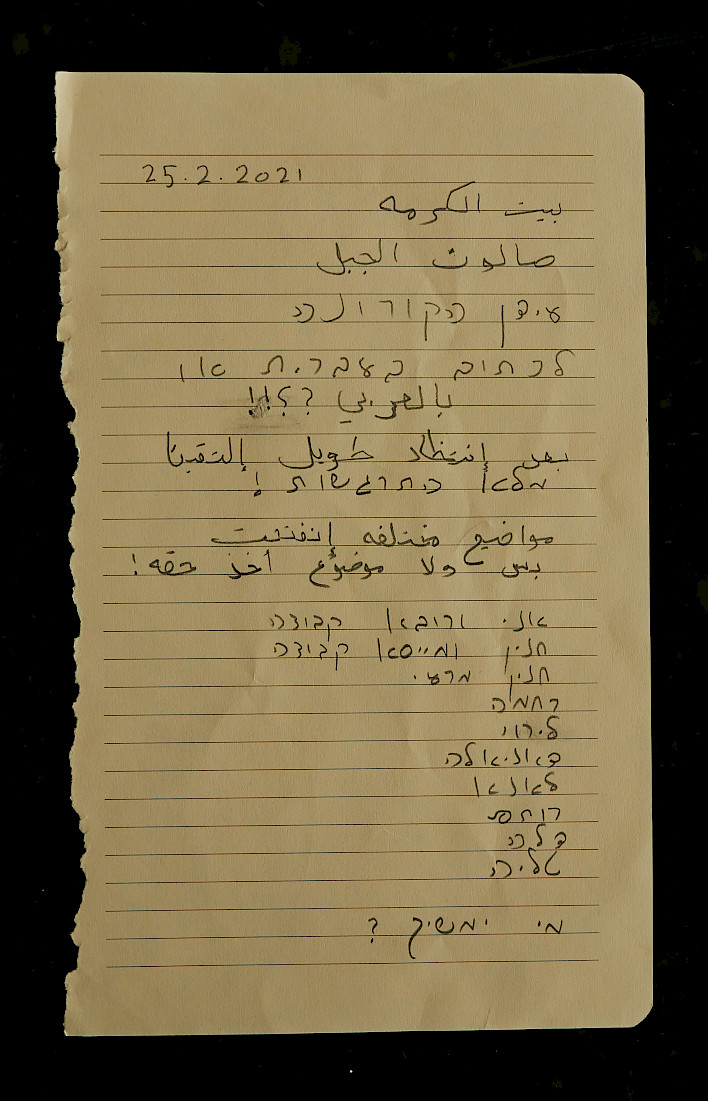 25.2.2021
بيت الكرمه
صالون الجبل
עידן הקורונה
לכתוב בעברית או
بالعربي ؟؟!!
بعد إنتظار طويل إلتقينا
מלא התרגשות!
مواضيع مختلفه إنفتحت
بس ولا موضوع أخذ حقه!
אני ורובא קבוצה
חנין ומייסא קבוצה
חנין מרעי
רחמה
לירוי
דאניאלה
לאנא
רותם
הלה
טליה
מי ימשיך ?